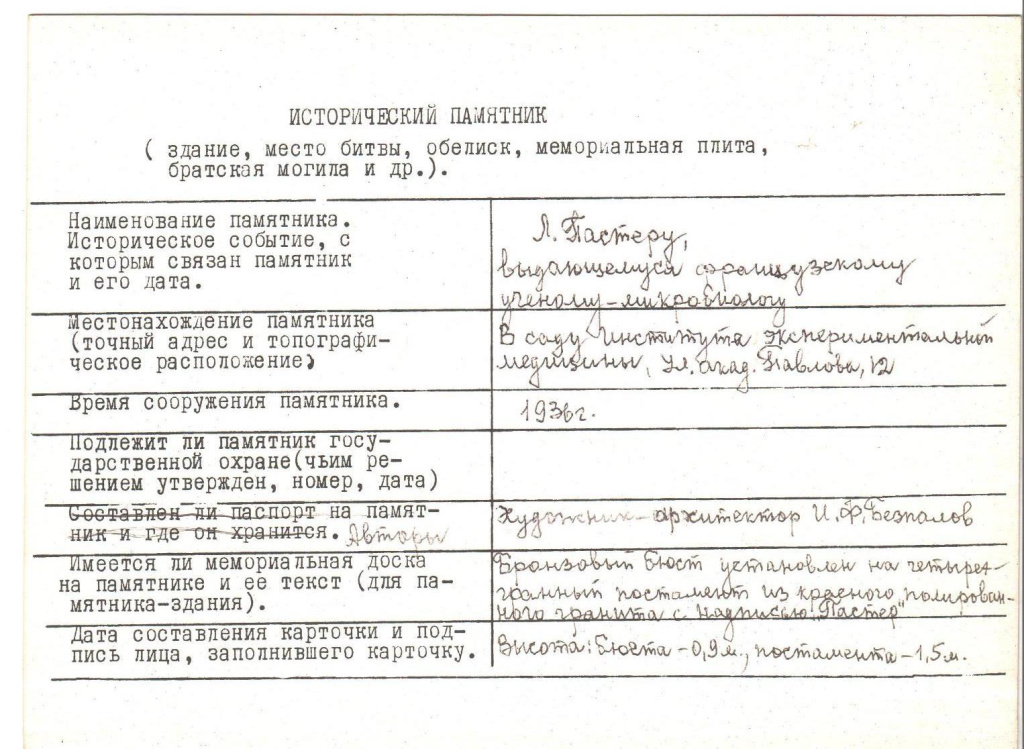 ИСТОРИЧЕСКИЙ ПАМЯТНИК
( здание, место битвы, обелиск, мемориальная плита,
братская могила и др.).
Наименование памятника.
Историческое событие, с
которым связан памятник
и его дата.
Л. Пастеру,
выдающемуся французскому
ученому-микробиологу
Местонахождение памятника
(точный адрес и топографи-
ческое расположение)
В саду Института экспериментальной
медицины, ул. акад. Павлова, 12
Время сооружения памятника.
1936г.
Подлежит ли памятник госу-
дарственной охране(чьим ре-
шением утвержден, номер, дата)
Составлен ли паспорт на памят-
ник и где он хранится. Авторы
Художник-архитектор И.Ф.Безпалов
Имеется ли мемориальная доска
на памятнике и ее текст (для па-
мятника-здания).
Бронзовый бюст установлен на четырех-
гранный постамент из красного полирован-
ного гранита с надписью: "Пастер"
Дата составления карточки и под-
пись лица, заполнившего карточку.
Высота: бюста - 0,9м., постамента - 1,5м.